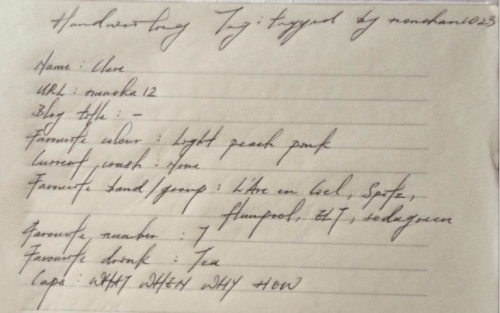 Handwriting Tag : tagged by nonchan1023
Name : Clare
URL : nanoka12
Blog title : -
Favourite colour : Light peach pink
Current crush : None
Favourite band/group : L'Arc en Ciel, Spitz,
flumpool, ELT, sodagreen
Favourite number : 7
Favourite drink : Tea
Caps : WHAT WHEN WHY HOW